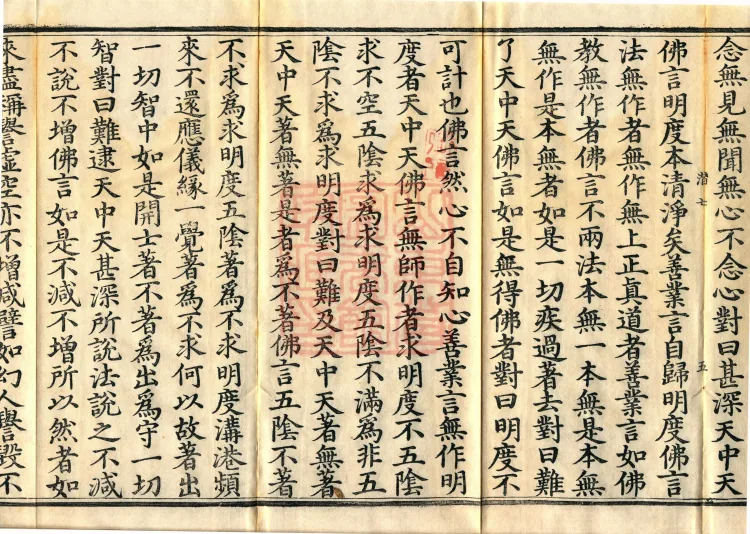 念無見無聞無心不念心對曰甚深天中天
佛言明度本清淨矣善業言自歸明度佛言
法無作者無作無上正真道者善業言如佛
教無作者佛言不兩法本無一本無是本無
無作是本無者如是一切疾過著去對曰難
了天中天佛言如是無得佛者對曰明度不
可計也佛言然心不自知心善業言無作明
度者天中天佛言無師作者求明度不五陰
求不空五陰求為求明度五陰不滿為非五
陰不求為求明度對曰難及天中天著無著
天中天著無著是者為不著佛言五陰不著
不求為求明度五陰著為不求明度溝港頻
來不還應儀緣一覺著為不求何以故著出
一切智中如是開士著不著為出為守一切
智對曰難逮天中天甚深所說法說之不減
不說不增佛言如是不減不增所以然者如
來盡稱譽虛空亦不增減譬如幻人譽毀不
潜七
五